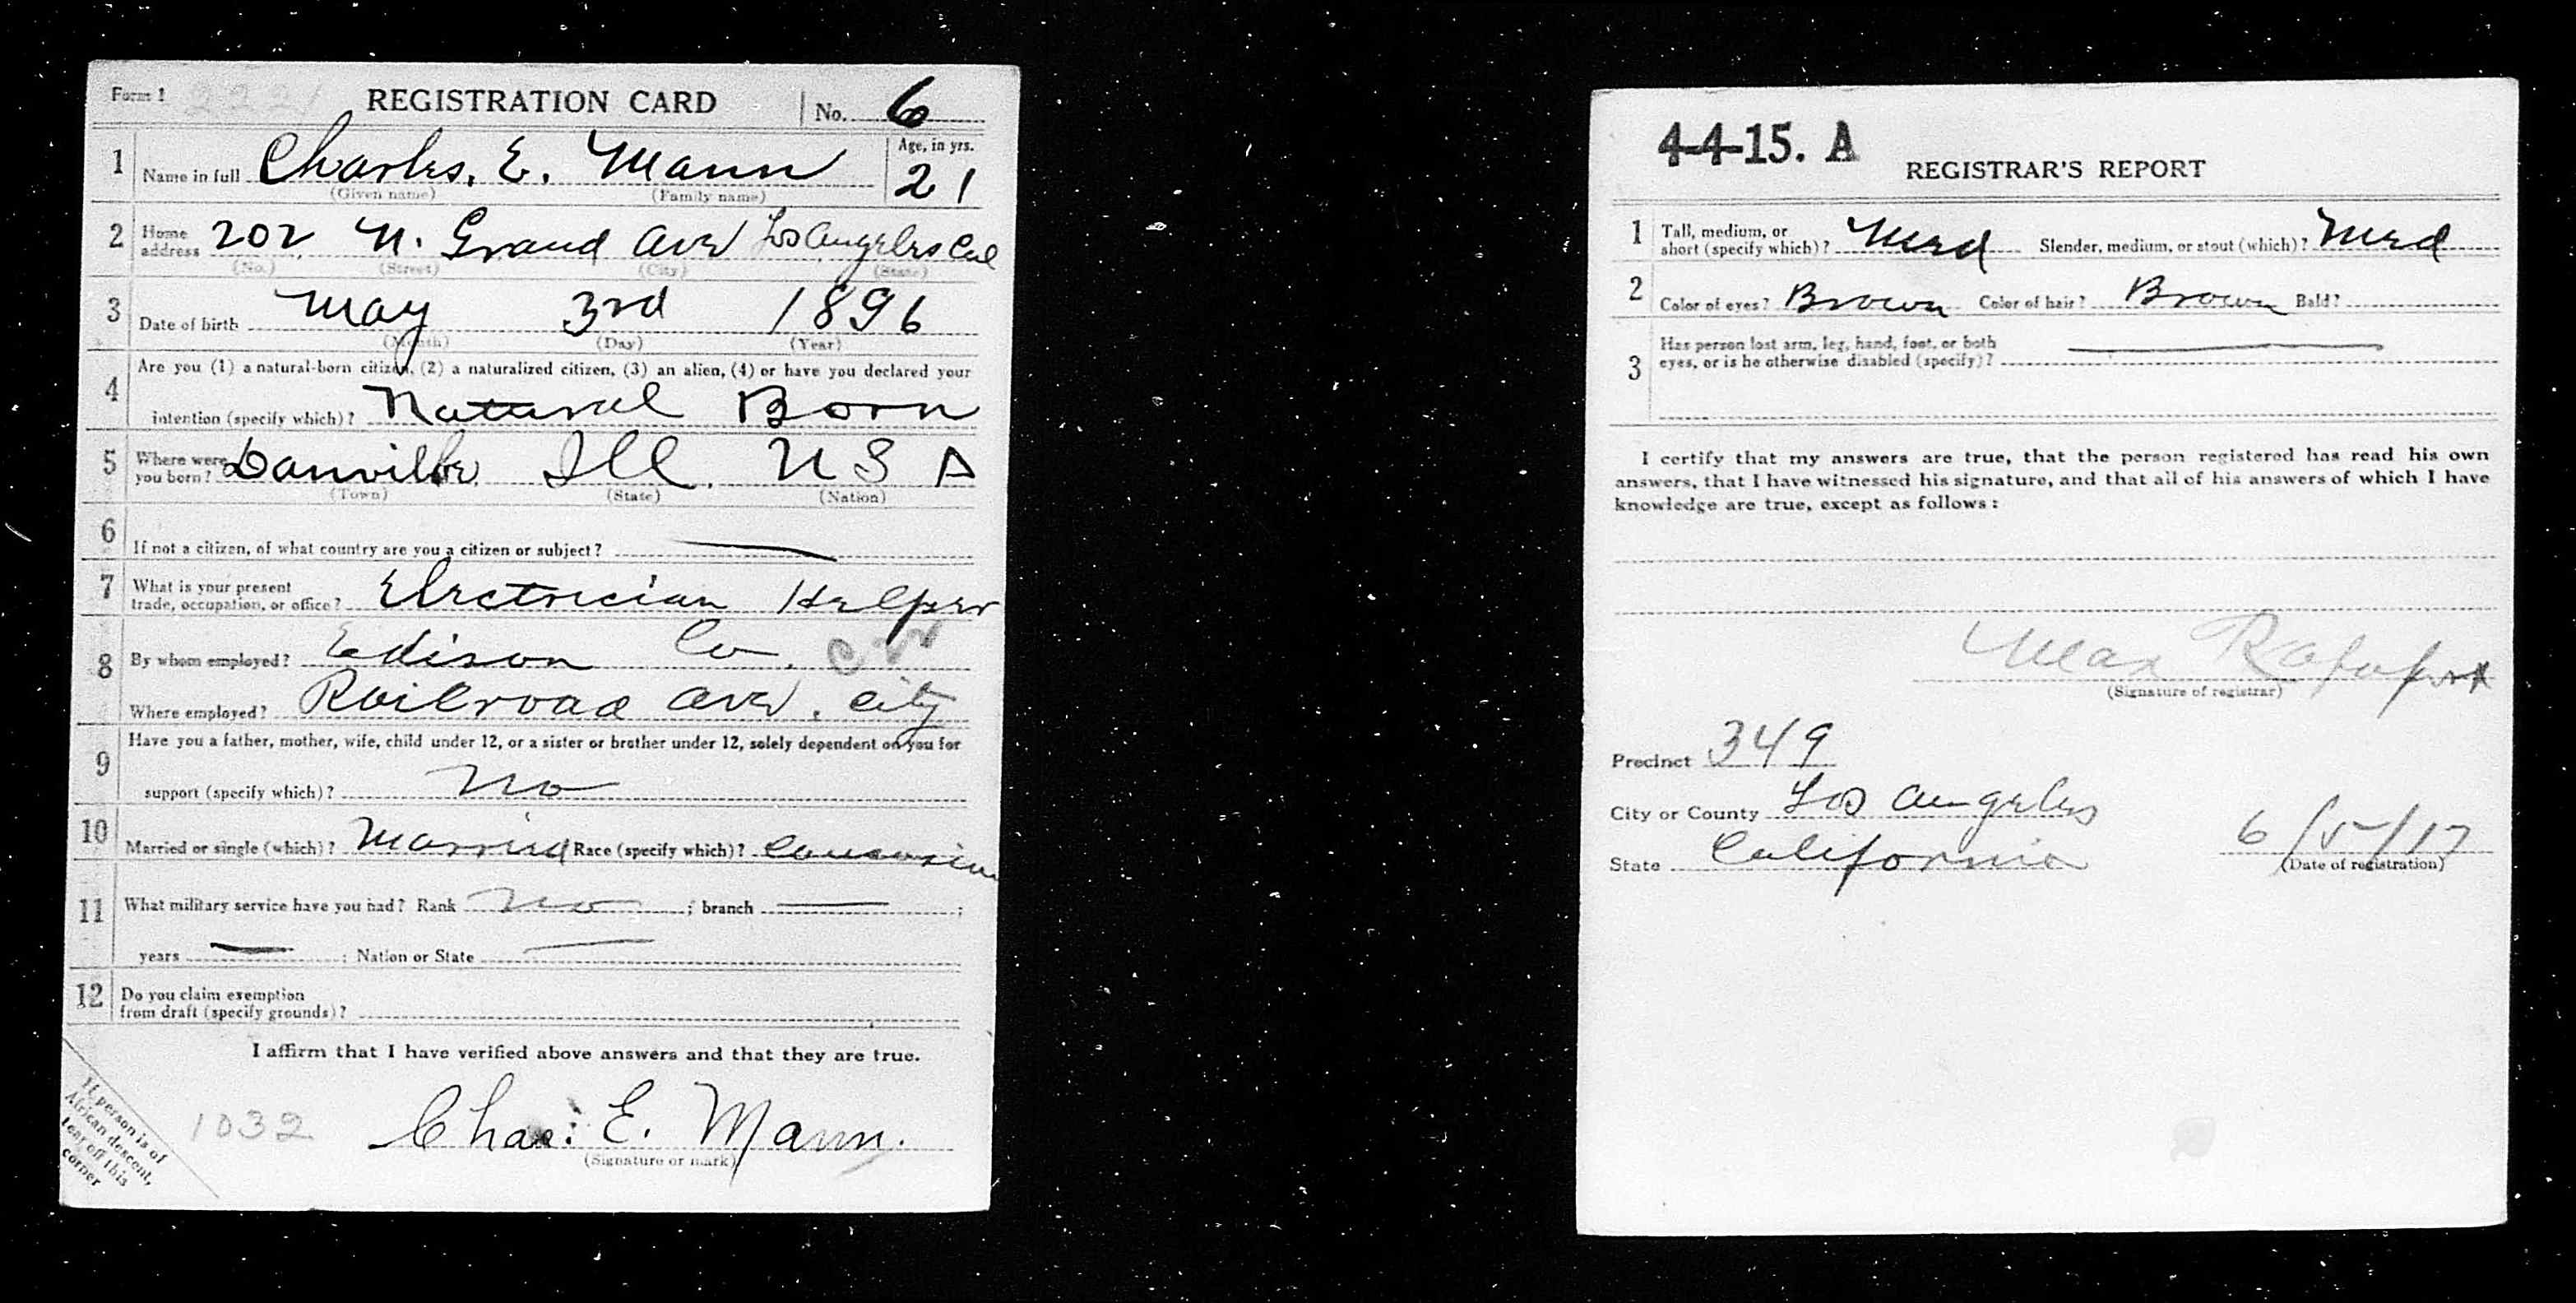 Form 1 2221 REGISTRATION CARD No. 6
1 Name in full Charles. E. Mann Age, in yrs. 21
(Given name) (Family name)
2 Home address 202 N. Grand Ave Los Angeles Cal
(No.) (Street) (City) (State)
3 Date of birth May 3rd 1896
(Month) (Day) (Year)
4 Are you (1) a natural-born citizen, (2) a naturalized citizen, (3) an alien, (4) or have you declared your
intention (specify which)? Natural Born
5 Where were you born? Danville Ill. U S A
(Town) (State) (Nation)
6 If not a citizen, of what country are you a citizen or subject?
7 What is your present trade, occupation, or office? Electrician Helper
8 By whom employed? Edison Co.
Where employed? Railroad Ave. City
9 Have you a father, mother, wife, child under 12, or a sister or brother under 12, solely dependent on you for
support (specify which)? No
10 Married or single (which)? Married Race (specify which)? Caucasian
11 What military service have you had? Rank No ; branch ;
years ; Nation or State
12 Do you claim exemption
from draft (specify grounds)?
I affirm that I have verified above answers and that they are true.
1032 Chas. E. Mann.
(Signature or mark)
If person is of
African descent,
tear off this
corner
4-4-15. A
REGISTRAR'S REPORT
1 Tall, medium, or short (specify which)? Med Slender, medium, or stout (which)? Med
2 Color of eyes? Brown Color of hair? Brown Bald?
3 Has person lost arm, leg, hand, foot, or both
eyes, or is he otherwise disabled (specify)?
I certify that my answers are true, that the person registered has read his own
answers, that I have witnessed his signature, and that all of his answers of which I have
knowledge are true, except as follows:
Max
(Signature of registrar)
Precinct 349
City or County Los Angeles
State California 6/5/17
(Date of registration)